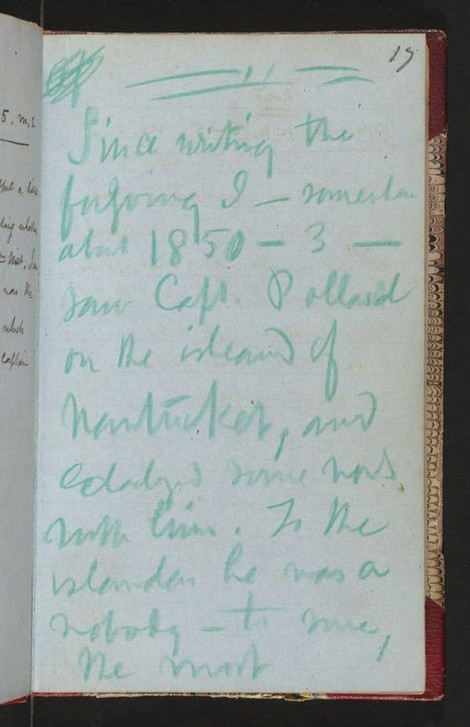 19
Since writing the
forgoing I — sometime
about 1850 — 3 —
saw Capt. Pollard
on the island of
Nantucket, and
exchanged some words
with him. To the
islanders he was a
nobody — to me,
the most
5, m,s
but a
captain